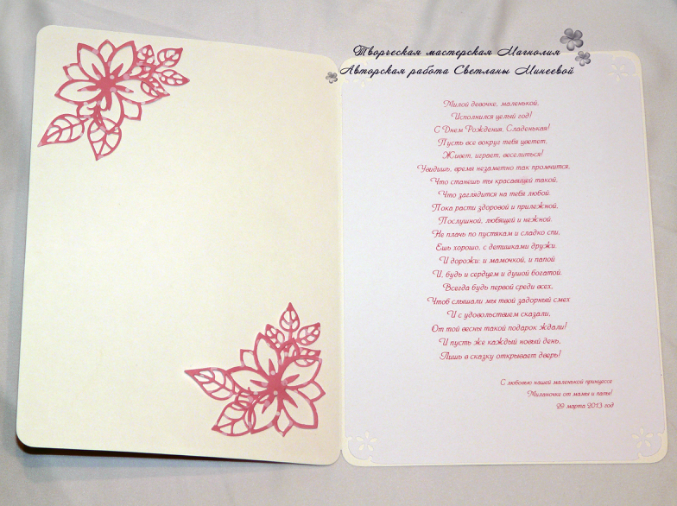 Творческая мастерская Магнолия
Авторская работа Светланы Минеевой
Милой девочке, маленькой,
Исполнился целый год!
С Днем Рождения, Сладенькая!
Пусть все вокруг тебя цветет,
Живет, играет, веселиться!
Увидишь, время незаметно так промчится,
Что станешь ты красавицей такой,
Что заглядится на тебя любой.
Пока расти здоровой и прилежной,
Послушной, любящей и нежной.
Не плачь по пустякам и сладко спи,
Ешь хорошо, с детишками дружи.
И дорожи и мамочкой, и папой.
И, будь и сердцем и душой богатой.
Всегда будь первой среди всех,
Чтоб слышали мы твой задорный смех
И с удовольствием сказали,
От той весны такой подарок ждали!
И пусть же каждый новый день,
Лишь в сказку открывает дверь!
С любовью нашей маленькой принцессе
от мамы и папы!
29 марта 2013 год